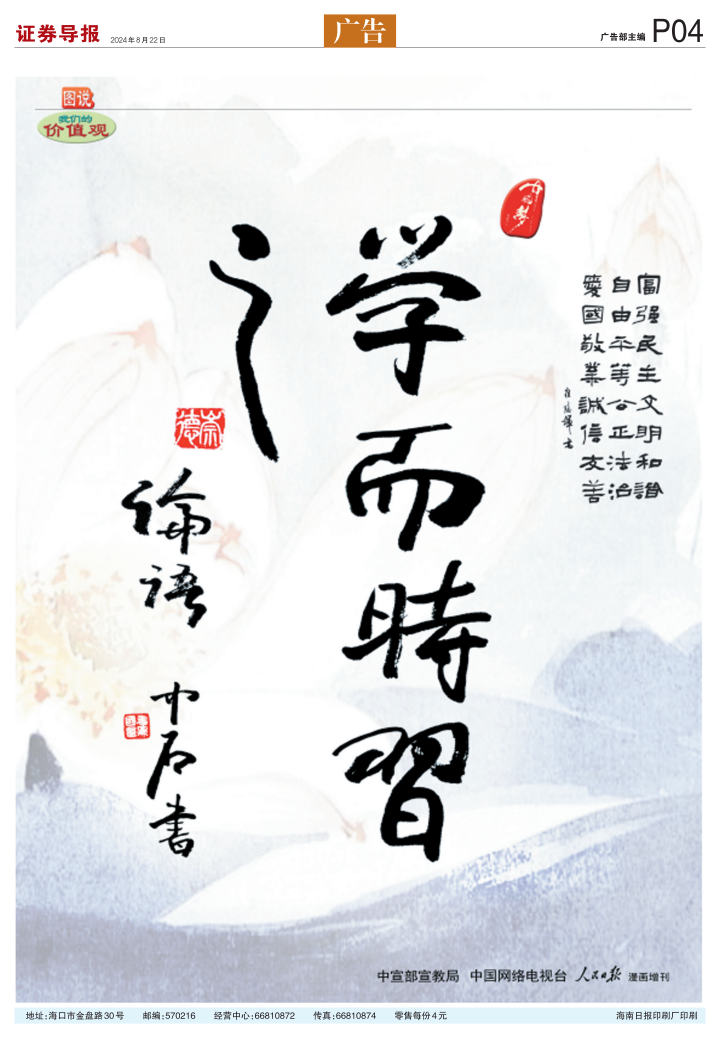 证券导报
2024年8月22日
广告
广告部主编
P04
图说
我们的
价值观
中国梦
富强民主文明和谐
自由平等公正法治
愛國敬業誠信友善
学而時習
之
崇德
論語
中石書
中宣部宣教局 中国网络电视台 人民日报 漫画增刊
地址:海口市金盘路30号 邮编:570216 经营中心:66810872 传真:66810874 零售每份4元
海南日报印刷厂印刷